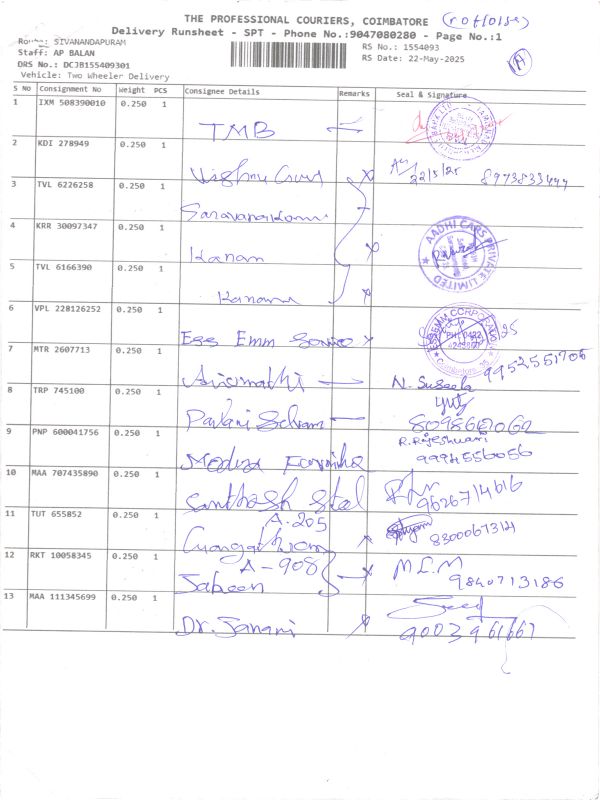 THE PROFESSIONAL COURIERS, COIMBATORE
Delivery Runsheet - SPT - Phone No.:9047080280 - Page No.:1
Route: SIVANANDAPURAM
RS No.: 1554093
Staff: AP BALAN
RS Date: 22-May-2025
DRS No.: DCJB155409301
Vehicle: Two Wheeler Delivery
S No Consignment No Weight PCS Consignee Details Remarks Seal & Signature
1 IXM 508390010 0.250 1
TMB
2 KDI 278949 0.250 1
22/5/25 8973833444
3 TVL 6226258 0.250 1
4 KRR 30097347 0.250 1
Kanam
AADHI CARS PRIVATE LIMITED
5 TVL 6166390 0.250 1
6 VPL 228126252 0.250 1
Ess Emm
ESSEMM CORPORATION
7 MTR 2607713 0.250 1
N. Suseela 9952551706
8 TRP 745100 0.250 1
Palani
8098662062
9 PNP 600041756 0.250 1
R. Rajeshwari
9994556056
10 MAA 707435890 0.250 1
Santhosh
9626714616
11 TUT 655852 0.250 1
A-205
12 RKT 10058345 0.250 1
A-908
Jabeen
M L M
9840713186
13 MAA 111345699 0.250 1
Dr. Janani
9003961667